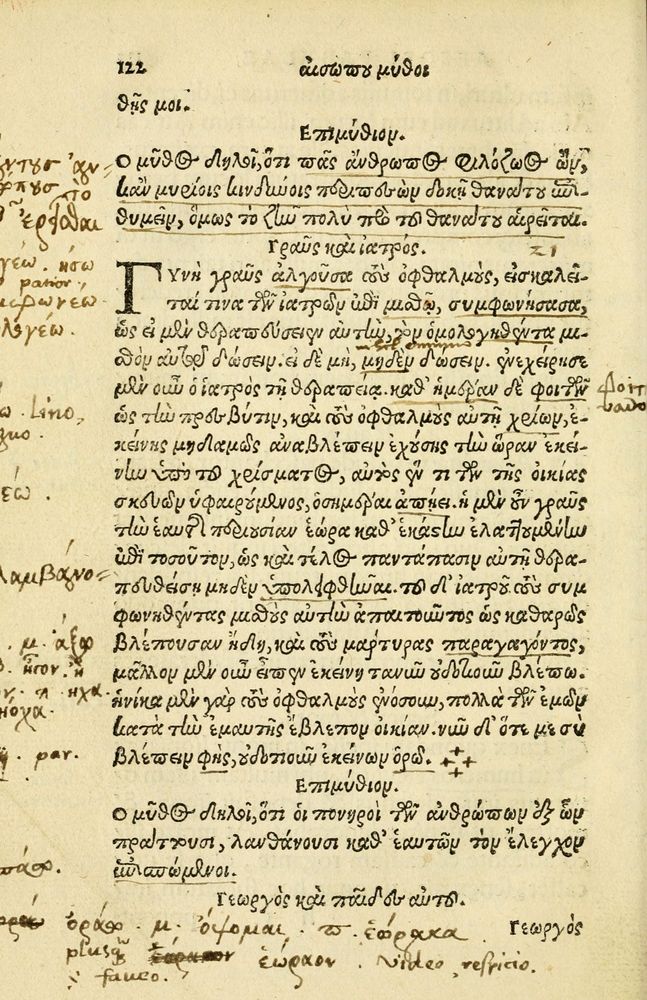 122 αισωπου μῦθοι
θῇς μοι.
Επιμύθιον.
Ο μῦθος δηλοῖ, ὅτι πᾶς ἄνθρωπος φιλόζωος ὢν,
κἂν μυρίοις κινδύνοις περιπεσὼν δοκῇ θανάτου ἐπι-
θυμεῖν, ὅμως τὸ ζῆν πολὺ πρὸ τοῦ θανάτου αἱρεῖται.
Γραῦς καὶ ἰατρός. 21
ΓΥΝὴ γραῦς ἀλγοῦσα τοὺς ὀφθαλμοὺς, εἰσκαλεῖ-
ταί τινα τῶν ἰατρῶν ἐπὶ μισθῷ, συμφωνήσασα,
ὡς εἰ μὲν θεραπεύσειεν αὐτὴν, τὸν ὁμολογηθέντα μι-
σθὸν αὐτῷ δώσειν. εἰ δὲ μὴ, μηδὲν δώσειν. ἐνεχείρησε
μὲν οὖν ὁ ἰατρὸς τῇ θεραπείᾳ. καθ' ἡμέραν δὲ φοιτῶν
ὡς τὴν πρεσβύτιν, καὶ τοὺς ὀφθαλμοὺς αὐτῇ χρίων, ἐ-
κείνης μηδαμῶς ἀναβλέπειν ἐχούσης τὴν ὥραν ἐκεί-
νην ὑπὸ τοῦ χρίσματος, αὐτὸς ἕν τι τῶν τῆς οἰκίας
σκευῶν ὑφαιρούμενος, ὁσημέραι ἀπῄει. ἡ μὲν οὖν γραῦς
τὴν ἑαυτῆς περιουσίαν ἑώρα καθ' ἑκάστην ἐλαττουμένην
ἐπὶ τοσοῦτον, ὡς καὶ τέλος παντάπασιν αὐτῇ θερα-
πευθείσῃ μηδὲν ὑπολειφθῆναι. τοῦ δ' ἰατροῦ τοὺς συμ
φωνηθέντας μισθοὺς αὐτὴν ἀπαιτοῦντος ὡς καθαρῶς
βλέπουσαν ἤδη, καὶ τοὺς μάρτυρας παραγαγόντος,
μᾶλλον μὲν οὖν εἶπεν ἐκείνη τανῦν οὐδοτιοῦν βλέπω.
ἡνίκα μὲν γὰρ τοὺς ὀφθαλμοὺς ἐνόσουν, πολλὰ τῶν ἐμῶν
κατὰ τὴν ἐμαυτῆς ἔβλεπον οἰκίαν. νῦν δ' ὅτε με σὺ
βλέπειν φῂς, οὐδοτιοῦν ἐκείνων ὁρῶ.
Επιμύθιον.
Ο μῦθος δηλοῖ, ὅτι οἱ πονηροὶ τῶν ἀνθρώπων ἐξ ὧν
πράττουσι, λανθάνουσι καθ' ἑαυτῶν τὸν ἔλεγχον
ἐπισπώμενοι.
Γεωργὸς καὶ παῖδες αὐτοῦ.
Γεωργὸς
ὁράω . μ. ὄψομαι . π. ἑώρακα
ἑώραον . video, resricio.
faueo.